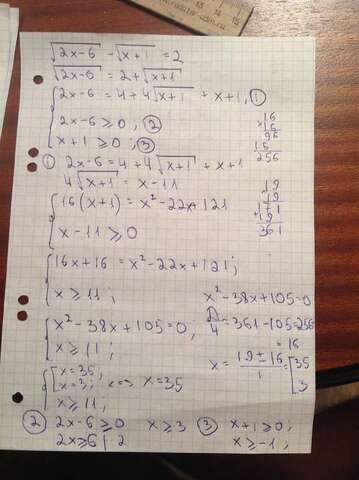 √2x-6 - √x+1 = 2
√2x-6 = 2+√x+1
{ 2x-6 = 4+4√x+1 + x+1, ①
2x-6 ≥ 0; ②
x+1 ≥ 0; ③
16
×16
96
16
256
① 2x-6 = 4+4√x+1 + x+1
4√x+1 = x-11
{ 16(x+1) = x²-22x+121
x-11 ≥ 0
19
×19
171
+19
361
{ 16x+16 = x²-22x+121;
x ≥ 11;
x²-38x+105=0
{ x²-38x+105=0;
x ≥ 11;
D/4 = 361-105=256
= 16
x = 19±16/1 = [ 35
3
{ [ x=35;
x=3; <=> x=35
x ≥ 11;
② 2x-6 ≥ 0 x ≥ 3
2x ≥ 6 | 2
③ x+1 ≥ 0;
x ≥ -1;